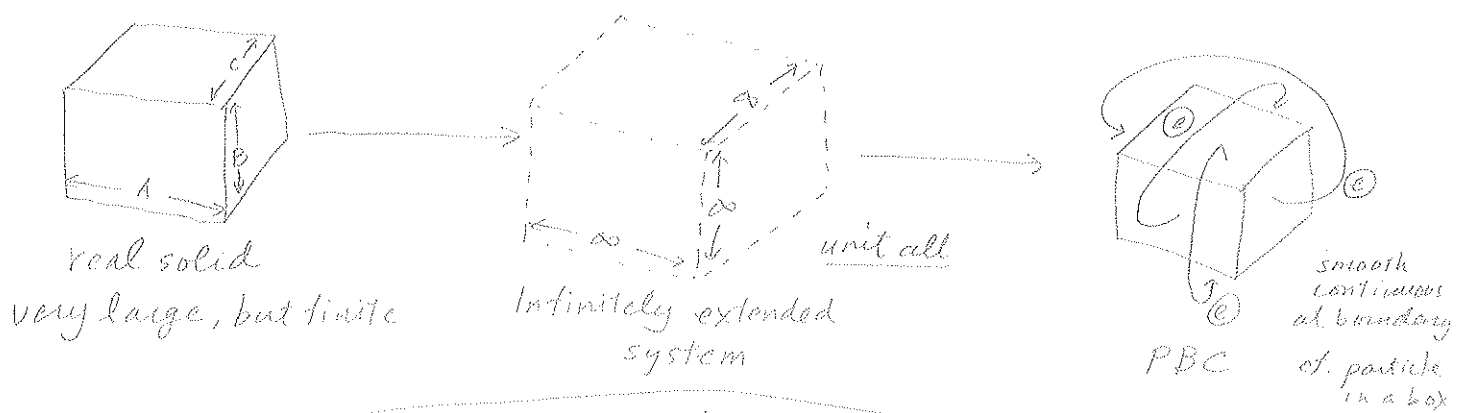 C
B
A
real solid
very large, but finite
∞
∞
∞
unit cell
Infinitely extended
system
e
e
e
PBC
smooth
continuous
at boundary
cf. particle
in a box